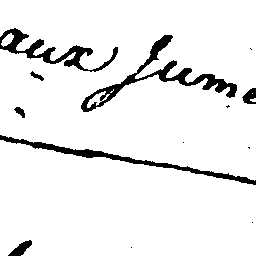 aux Jume